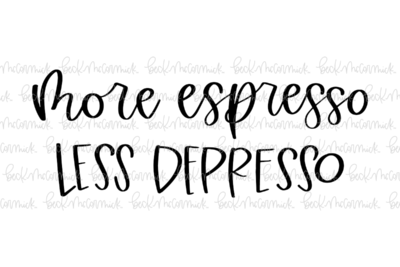 more espresso
LESS DEPRESSO